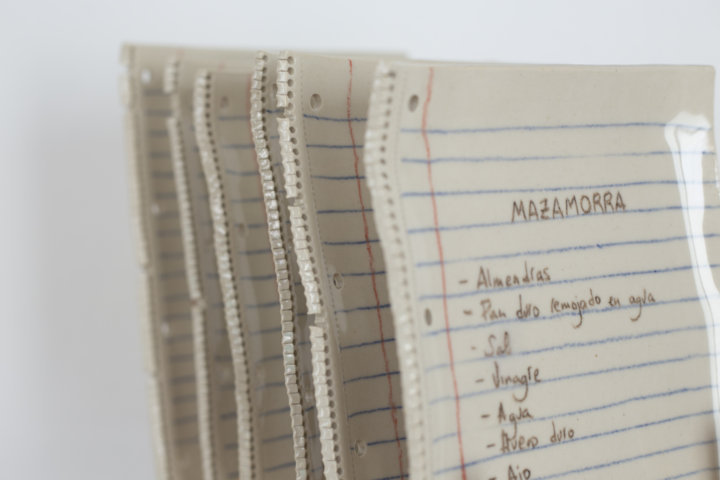 MAZAMORRA
- Almendras
- Pan duro remojado en agua
- Sal
- Vinagre
- Agua
- Huevo duro
- Ajo